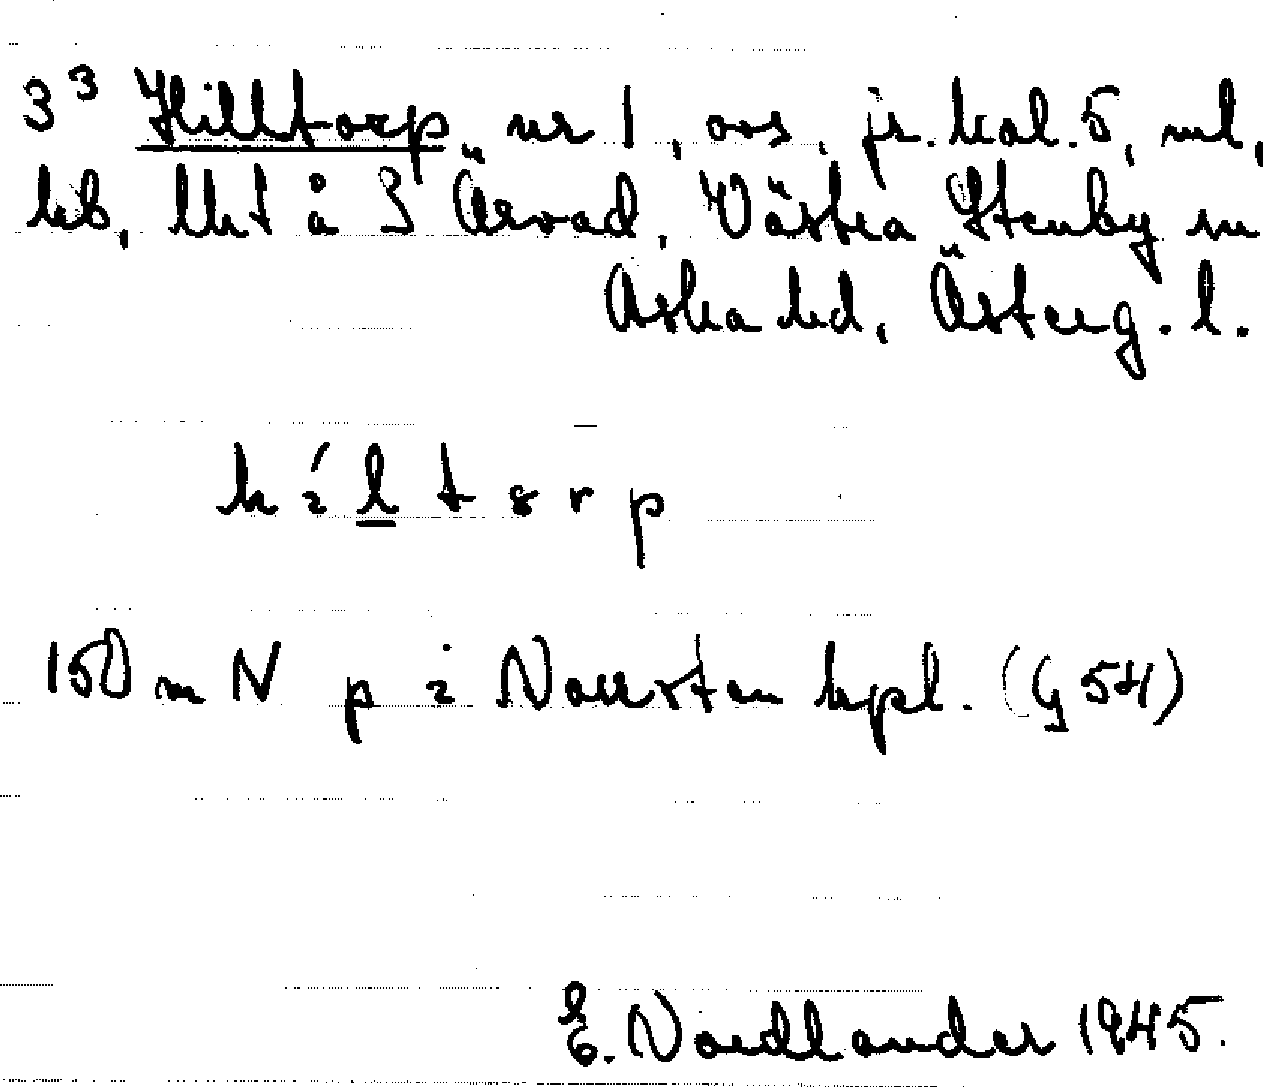 3³ Hilltorp, nr 1, oos, jr. kal. 5, ml,
kb, lht å S Ärvad, Västra Stenby sn
Aska hd, Österg. l.
h í l t o r p
150 m N p i Norrsten kpl. (G 54)
E. Nordlander 1945.